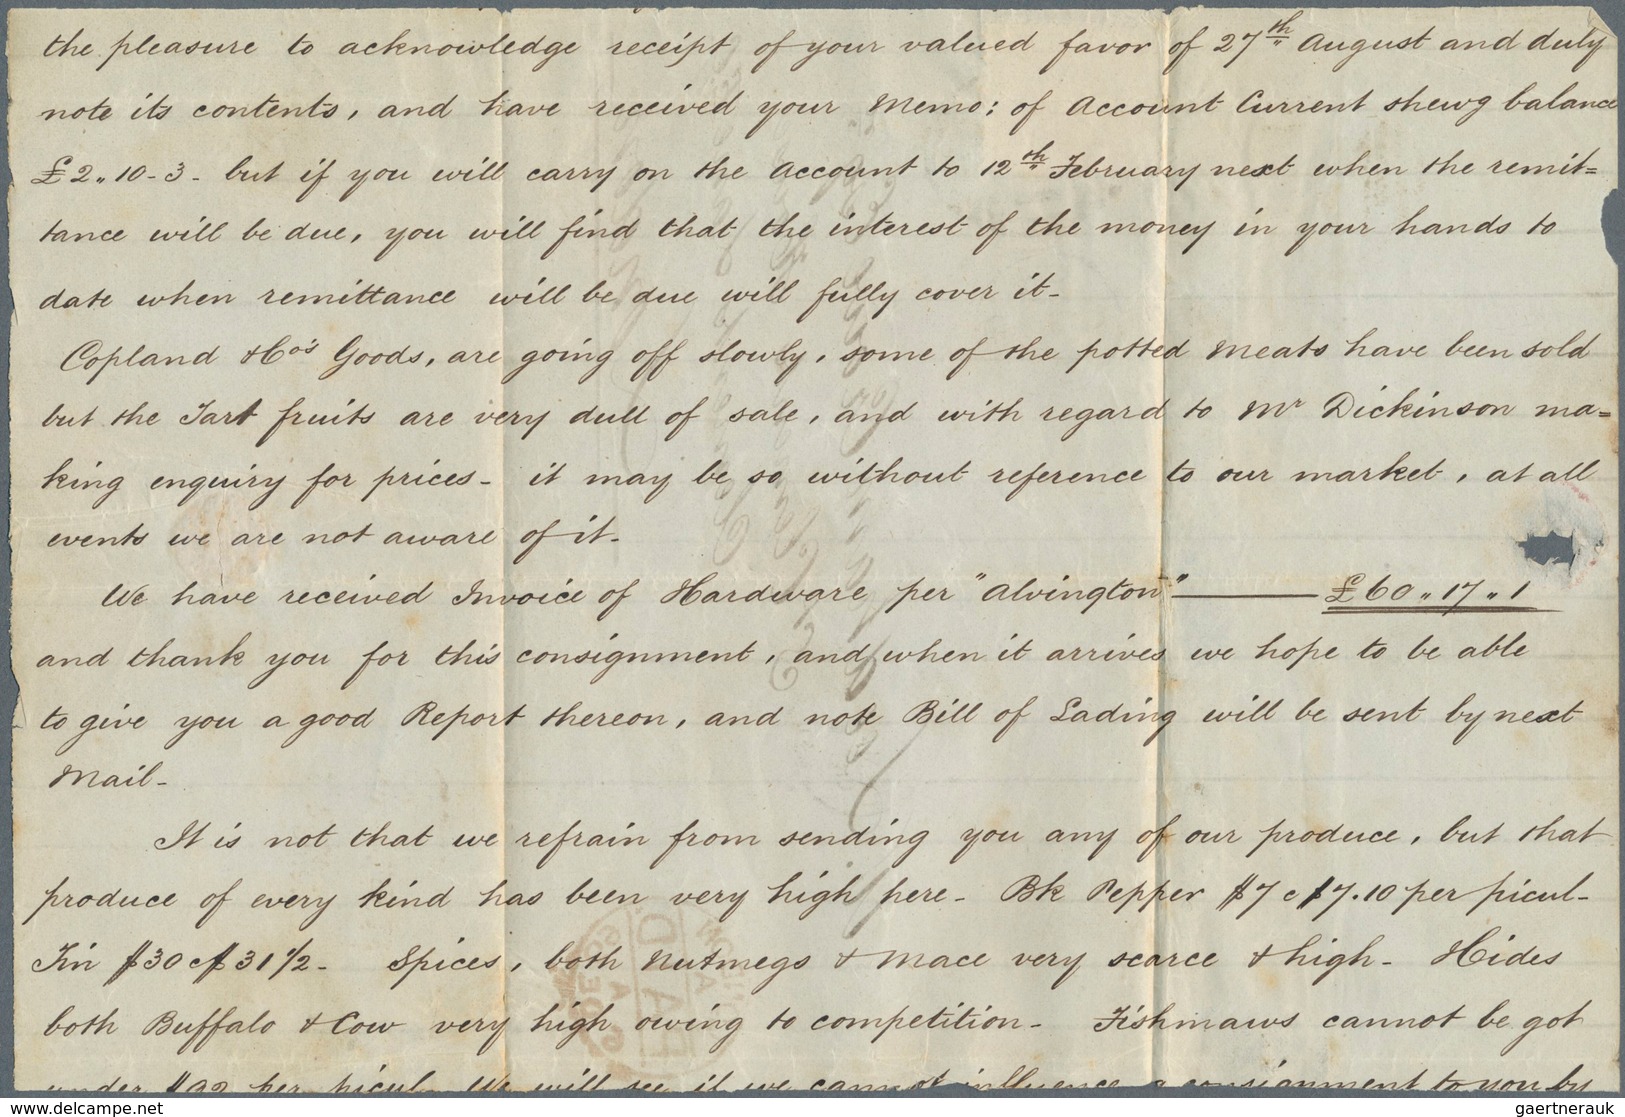 the pleasure to acknowledge receipt of your valued favor of 27th August and duly
note its contents, and have received your Memo: of Account Current shewg balance
£2„10-3- but if you will carry on the Account to 12th February next when the remit=
tance will be due, you will find that the interest of the money in your hands to
date when remittance will be due will fully cover it-
Copland & Co's Goods, are going off slowly, some of the potted Meats have been sold
but the Tart fruits are very dull of sale, and with regard to Mr Dickinson ma=
king enquiry for prices- it may be so without reference to our market, at all
events we are not aware of it-
We have received Invoice of Hardware per "Alvington" £60„17„1
and thank you for this consignment, and when it arrives we hope to be able
to give you a good Report thereon, and note Bill of Lading will be sent by next
Mail-
It is not that we refrain from sending you any of our produce, but that
produce of every kind has been very high here- Bk Pepper $7 @ $7.10 per picul-
Tin $30 @ $31 1/2- Spices, both Nutmegs & Mace very scarce & high- Hides
both Buffalo & Cow very high owing to competition- Fishmaws cannot be got
under per picul- We will see if we cannot influence a consignment to you by
gaertnerauk